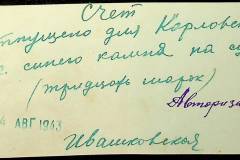 Счет
тпущено для Карловск
г. синего камня на су
(тридцать марок)
Авториза
4 АВГ 1943
Ивашковская